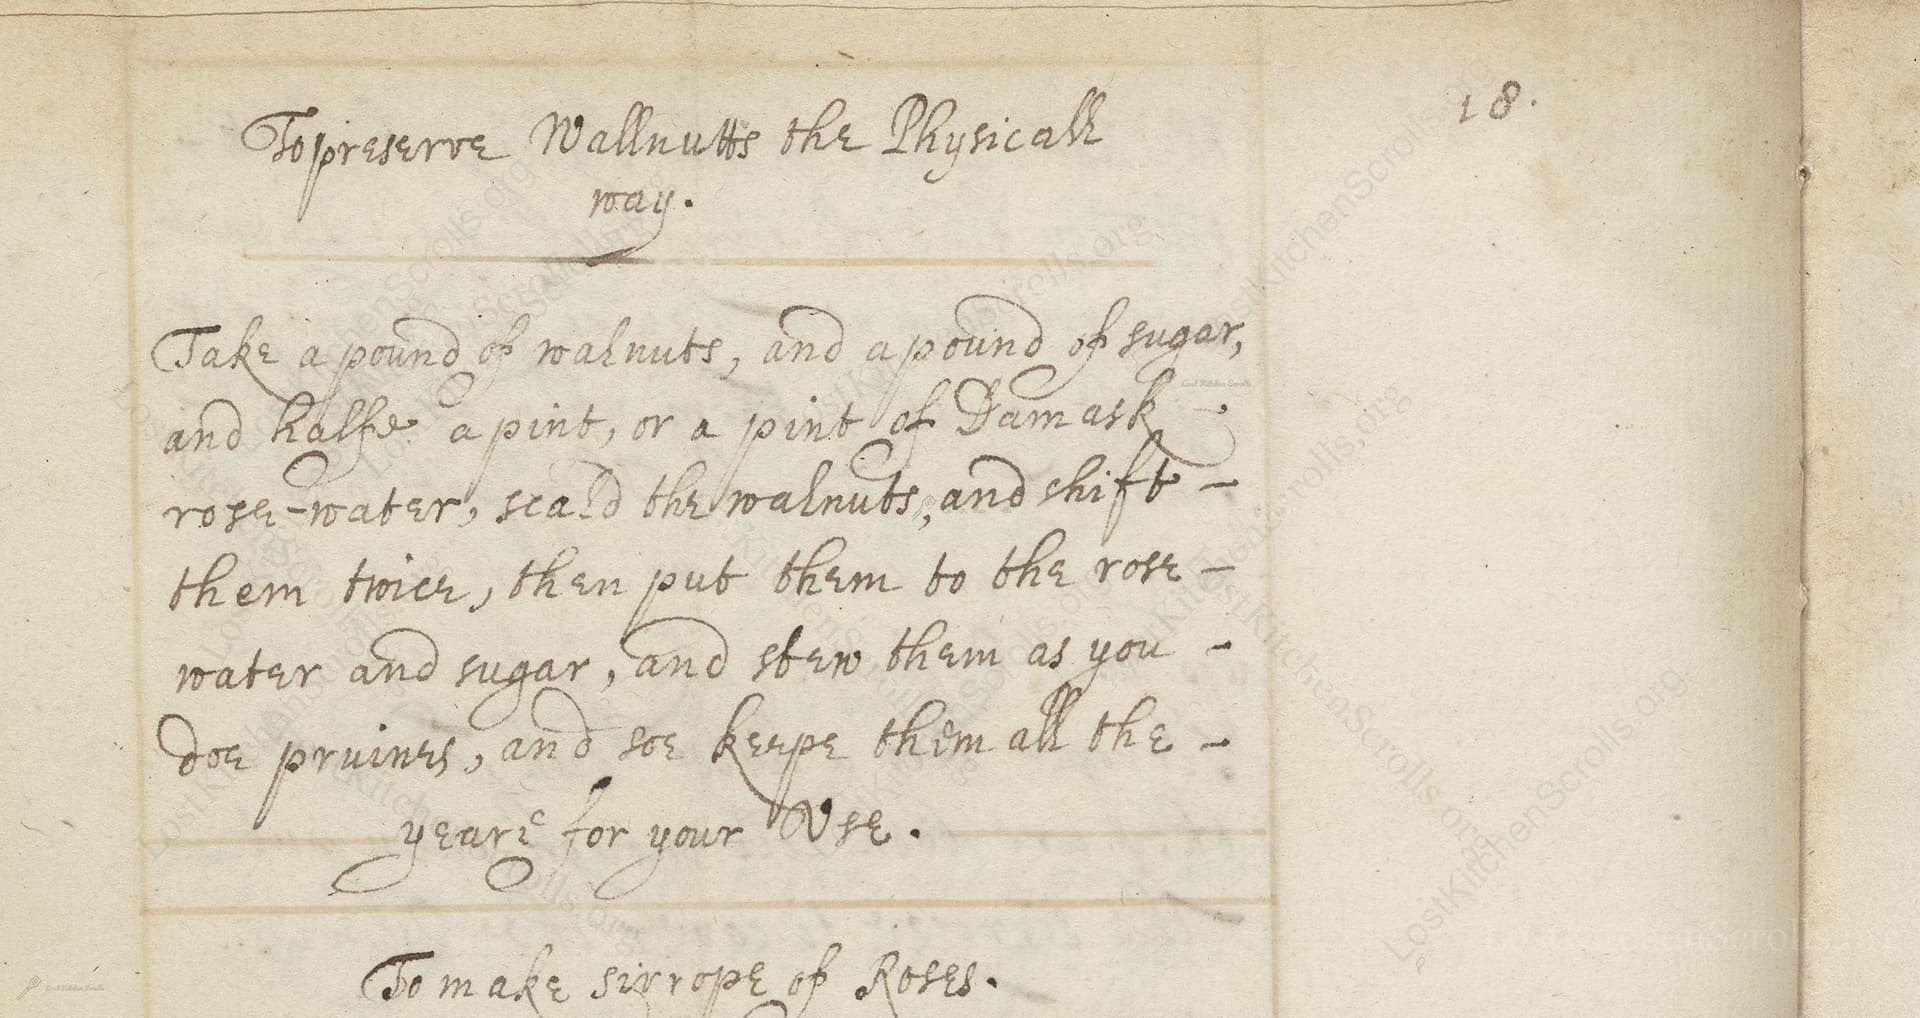 18.
To preserve Wallnutts the Physicall
way.
Take a pound of walnuts, and a pound of sugar,
and halfe a pint, or a pint of Damask -
rose-water, scald the walnuts, and shift -
them twice, then put them to the rose -
water and sugar, and stew them as you -
doe pruines, and soe keepe them all the -
yeare for your Vse.
To make sirrope of Roses.
LostKitchenScrolls.org